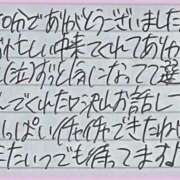 0分でありがとうございました
お忙しい中来てくれてあり
(泣)ずっと気になってて選
んでくれた 沢山お話して
っぱいイチャイチャできたね
またいつでも待ってます